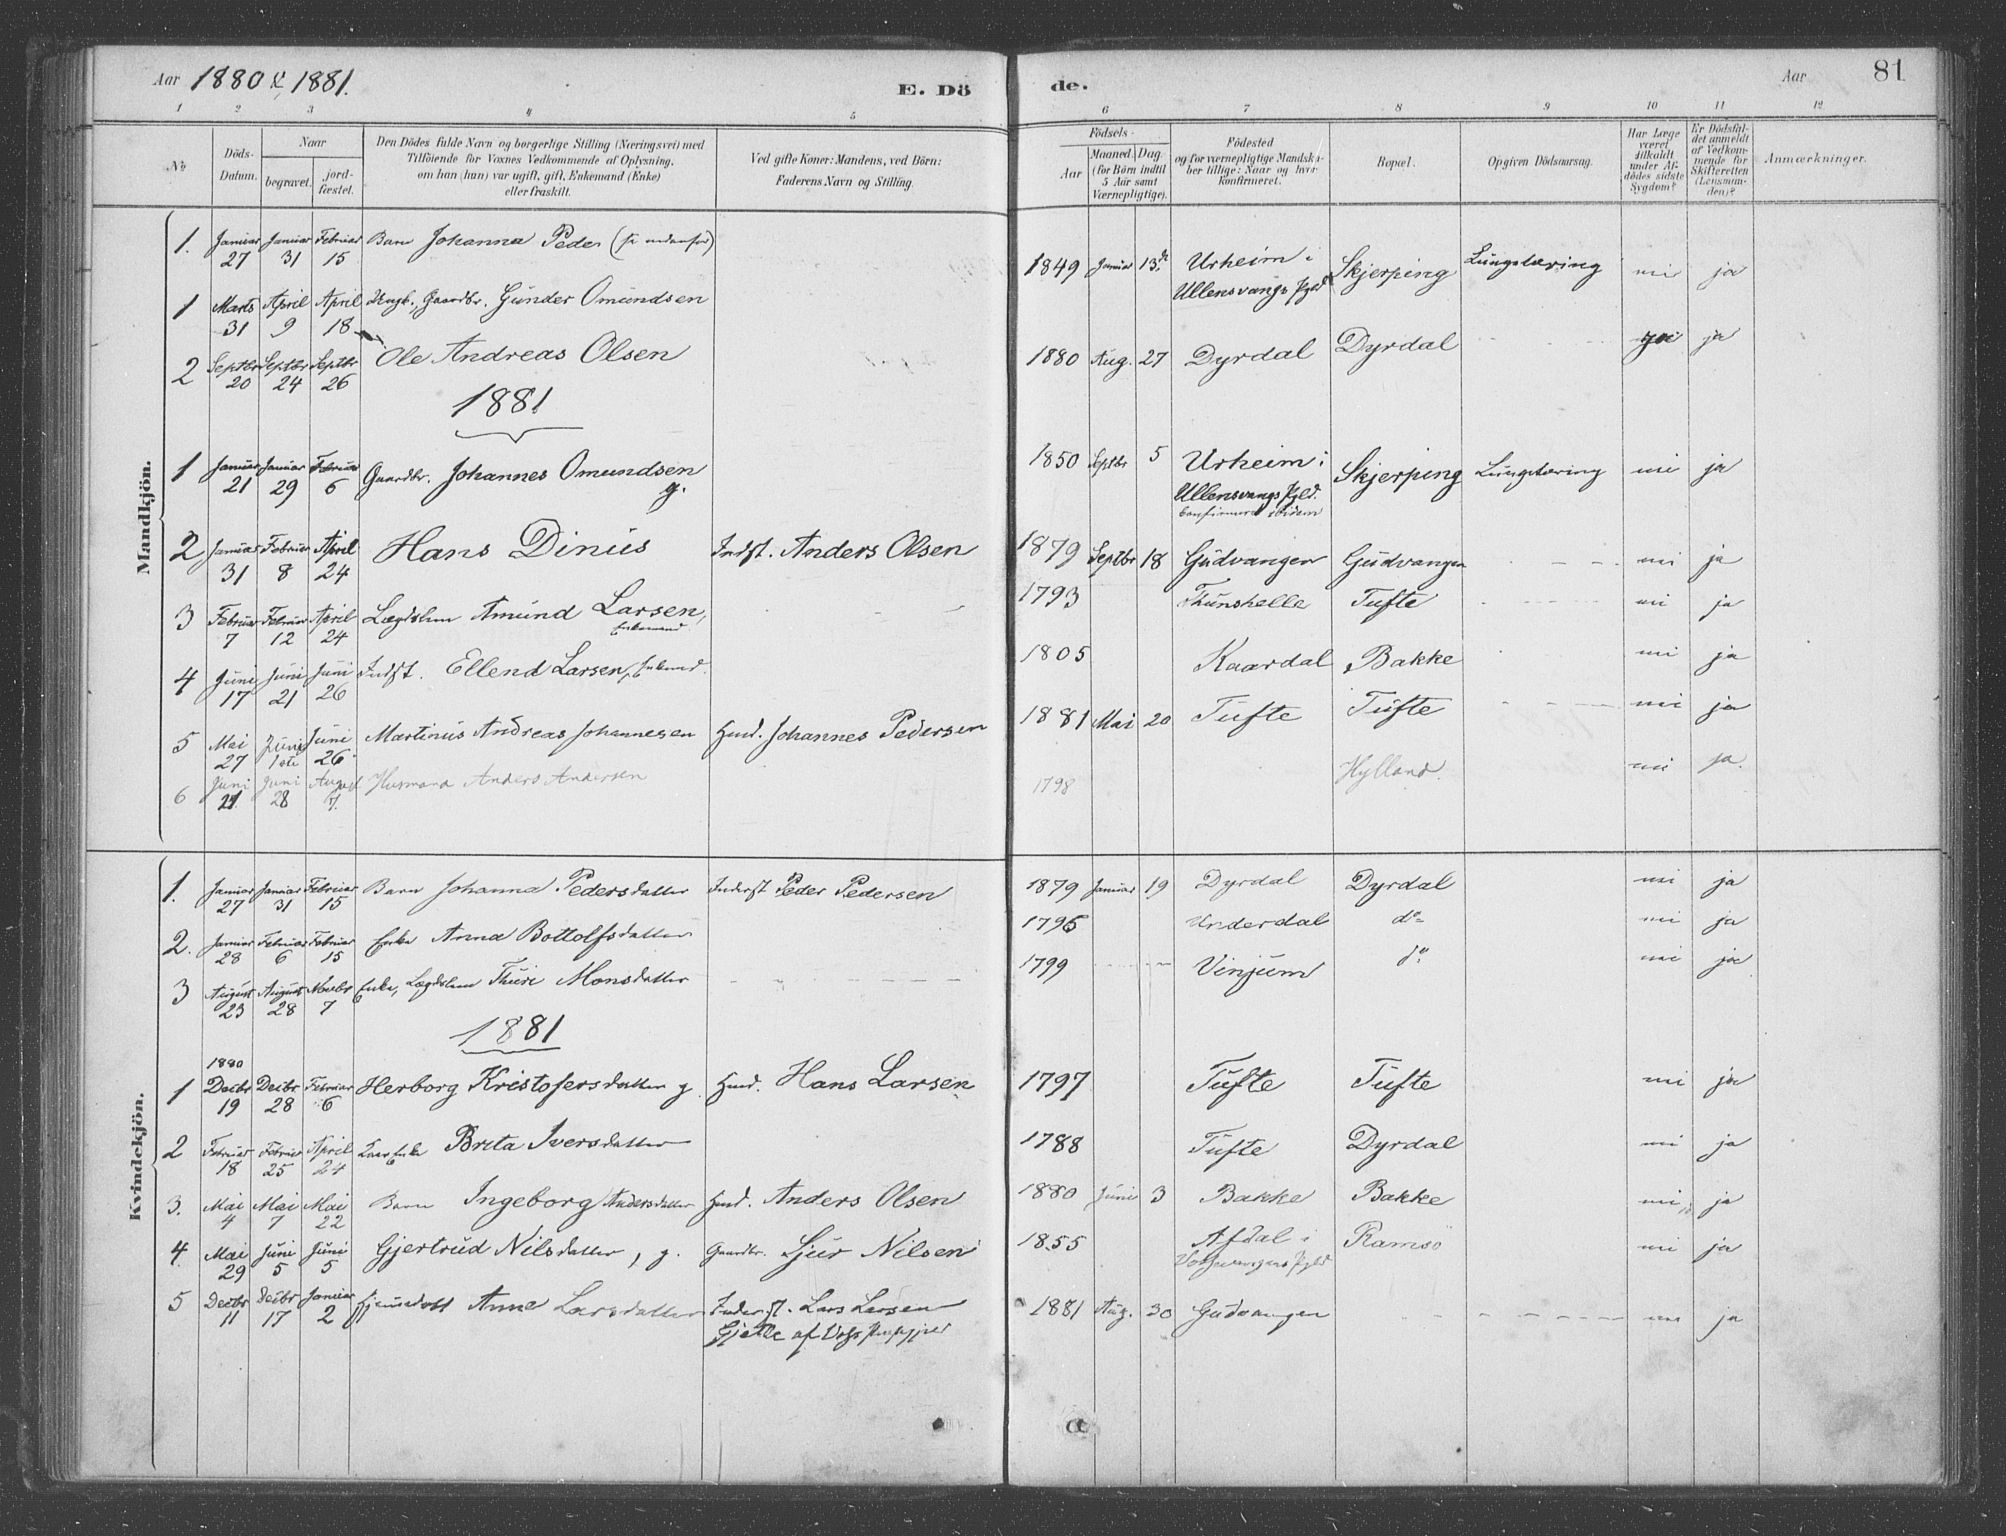 Aar 1880 & 1881.
E. Dö
de.
Aar
81
1 2 3 4 5 6 7 8 9 10 11 12
No
Döds-
Datum.
Naar
begravet.
jord-
fæstet.
Den Dödes fulde Navn og borgerlige Stilling (Næringsvei) med
Tilföiende for Voxnes Vedkommende af Oplysning,
om han (hun) var ugift, gift, Enkemand (Enke)
eller fraskilt.
Ved gifte Koner: Mandens, ved Börn:
Faderens Navn og Stilling.
Födsels-
Aar
Maaned. Dag
(for Börn indtil
5 Aar samt
Værnepligtige).
Födested
og for værnepligtige Mandska-
ber tillige: Naar og hvor
konfirmeret.
Bopæl.
Opgiven Dödsaarsag.
Har Læge
været
tilkaldt
under Af-
dödes sidste
Sygdom?
Er Dödsfal-
det anmeldt
af Vedkom-
mende for
Skifteretten
(Lensman-
den)?
Anmærkninger.
Mandkjön.
1. Januar 27 Januar 31 Februar 15 Barn Johanna Peders (se nedenfor)
1 Marts 31 April 9 April 18 Ungk., Gaardbr. Gunder Omundsen 1849 Januar 13de Urheim i Ullensvangs Pgld Skjerping Lungetæring nei ja
2 Septbr 20 Septbr 24 Septbr 26 Ole Andreas Olsen 1880 Aug. 27 Dyrdal Dyrdal ja
1881
1 Januar 21 Januar 29 Februar 6 Gaardbr. Johannes Omundsen g. 1850 Septbr 5 Urheim i Ullensvangs Pgld. Confirmeret ibidem Skjerping Lungetæring nei ja
2 Januar 31 Februar 8 April 24 Hans Dinius Indst. Anders Olsen 1879 Septbr 18 Gudvangen Gudvangen nei ja
3 Februar 7 Februar 12 April 24 Lægdslem Amund Larsen, Enkemand 1793 Thunshelle Tufte nei ja
4 Juni 17 Juni 21 Juni 26 Indst. Ellend Larsen, Enkmd. 1805 Kaardal Bakke nei ja
5 Mai 27 Juni 1ste Juni 26 Martinus Andreas Johannesen Husmd. Johannes Pedersen 1881 Mai 20 Tufte Tufte nei ja
6 Juni 21 Juni 28 August 7. Husmand Anders Andersen 1798 Hylland. nei ja.
Kvindekjön.
1. Januar 27 Januar 31 Februar 15 Barn Johanna Pedersdatter Inderst Peder Pedersen 1879 Januar 19 Dyrdal Dyrdal nei ja
2. Januar 28 Februar 6 Februar 15 Enke Anna Bottolfsdatter 1796 Underdal do nei ja
3 August 23 August 28 Novbr 7 Enke, Lægdslem Thuri Monsdatter 1799 Vinjum do nei ja
1881
1 1880 Decbr 19 Decbr 28 Februar 6 Herborg Kristofersdatter g. Husmd. Hans Larsen 1797 Tufte Tufte nei ja
2 Februar 18 Februar 25 April 24 Enke Brita Iversdatter 1788 Tufte Dyrdal nei ja
3. Mai 4 Mai 7 Mai 22 Barn Ingeborg Andersdatter Husmd. Anders Olsen 1880 Juni 3 Bakke Bakke nei ja
4. Mai 29 Juni 5 Juni 5 Gjertrud Nilsdatter, g. Gaardbr. Sjur Nilsen 1855 Afdal i Vossevangens Pgld Ramsö nei ja
5 Decbr 11 Decbr 17 Januar 2 Anna Larsdatter Inderst. Lars Larsen Gjelle af Vofs Præstegjeld 1881 Aug. 30 Gudvangen ja